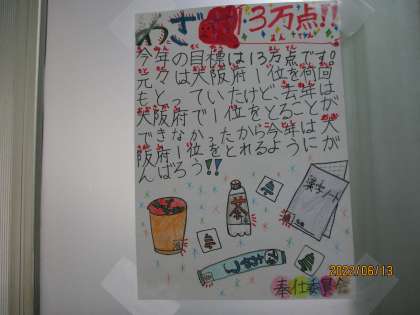 めざせ 13万点!!
今年の目標は13万点です。
元々は大阪府1位を何回
もとっていたけど、去年は
大阪府で1位をとることが
できなかったから今年は大
阪府1位をとれるようにが
んばろう!!
茶
学習ノート
奉仕委員会
2022/06/13